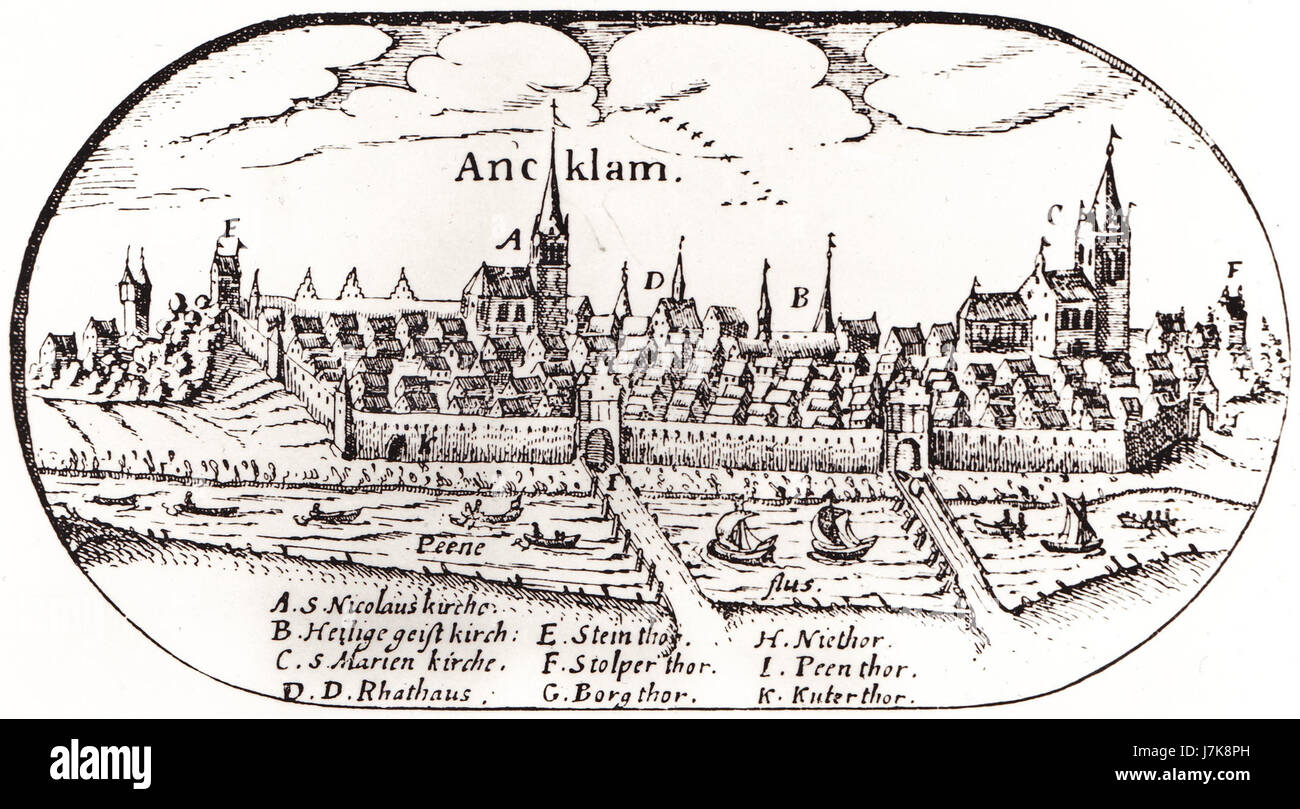 Ancklam.
E
A
D
B
C
F
K
I
Peene
flus.
A. S. Nicolaus kirche.
B. Heilige geist kirch:
C. S. Marien kirche.
D. D. Rhathaus.
E. Stein thor.
F. Stolper thor.
G. Borg thor.
H. Niethor.
I. Peen thor.
K. Kuter thor.
alamy stock photo
J7K8PH
www.alamy.com